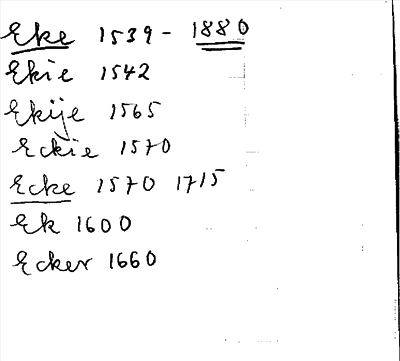 Eke 1539 - 1880
Ekie 1542
Ekije 1565
Eckie 1570
Ecke 1570 1715
Ek 1600
Ecker 1660